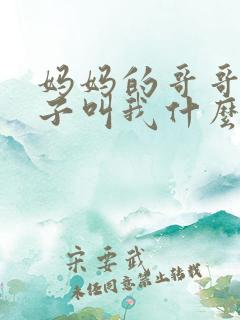 妈妈的哥哥
子叫我什麽
宋要武
未经同意禁止转载